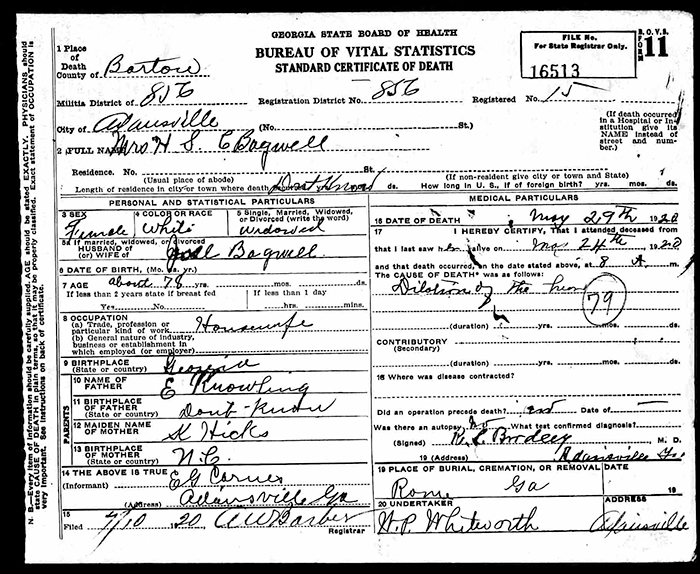 GEORGIA STATE BOARD OF HEALTH
BUREAU OF VITAL STATISTICS
STANDARD CERTIFICATE OF DEATH
FILE No.
For State Registrar Only.
16513
B.O.V.S. FORM 11
1 Place of Death
County of Bartow
Militia District of 856 Registration District No. 856 Registered No. 15
City of Adairsville (No. St.)
(If death occurred in a Hospital or Institution give its NAME instead of street and number.)
2 FULL NAME Mrs H S E Bagwell
Residence. No. St.
(Usual place of abode) (If non-resident give city or town and State)
Length of residence in city or town where death Dont Know ds. How long in U. S., if of foreign birth? yrs. mos. ds.
PERSONAL AND STATISTICAL PARTICULARS
3 SEX Female 4 COLOR OR RACE White 5 Single, Married, Widowed, or Divorced (write the word) widowed
5a If married, widowed, or divorced
HUSBAND of (or) WIFE of Joel Bagwell
6 DATE OF BIRTH, (Mo. da. yr.)
7 AGE about 78
If less than 2 years state if breast fed If less than 1 day
Yes No hrs. mins.
8 OCCUPATION
(a) Trade, profession or particular kind of work Housewife
(b) General nature of industry, business or establishment in which employed (or employer)
9 BIRTHPLACE (State or country) Georgia
PARENTS
10 NAME OF FATHER E Knowling
11 BIRTHPLACE OF FATHER (State or country) Dont-Know
12 MAIDEN NAME OF MOTHER K Hicks
13 BIRTHPLACE OF MOTHER (State or country) N.C.
14 THE ABOVE IS TRUE
(Informant) E G
(Address) Adairsville Ga
15 Filed 7/10 1920 A W Barber
Registrar
MEDICAL PARTICULARS
16 DATE OF DEATH May 29th 1920
17 I HEREBY CERTIFY, That I attended deceased from
that I last saw h alive on May 24th 1920
and that death occurred, on the date stated above, at 8 A. m.
The CAUSE OF DEATH* was as follows:
Dilation of the
79
(duration) yrs. mos. ds.
CONTRIBUTORY (Secondary)
(duration) yrs. mos. ds.
18 Where was disease contracted?
Did an operation precede death? no Date of
Was there an autopsy? no What test confirmed diagnosis?
(Signed) M. D.
19 (Address) Adairsville Ga
19 PLACE OF BURIAL, CREMATION, OR REMOVAL DATE
Rome Ga 19
20 UNDERTAKER ADDRESS
W. P. Whitworth Adairsville
N. B.—Every item of information should be carefully supplied. AGE should be stated EXACTLY. PHYSICIANS should state CAUSE OF DEATH in plain terms, so that it may be properly classified. Exact statement of OCCUPATION is very important. See instructions on back of certificate.